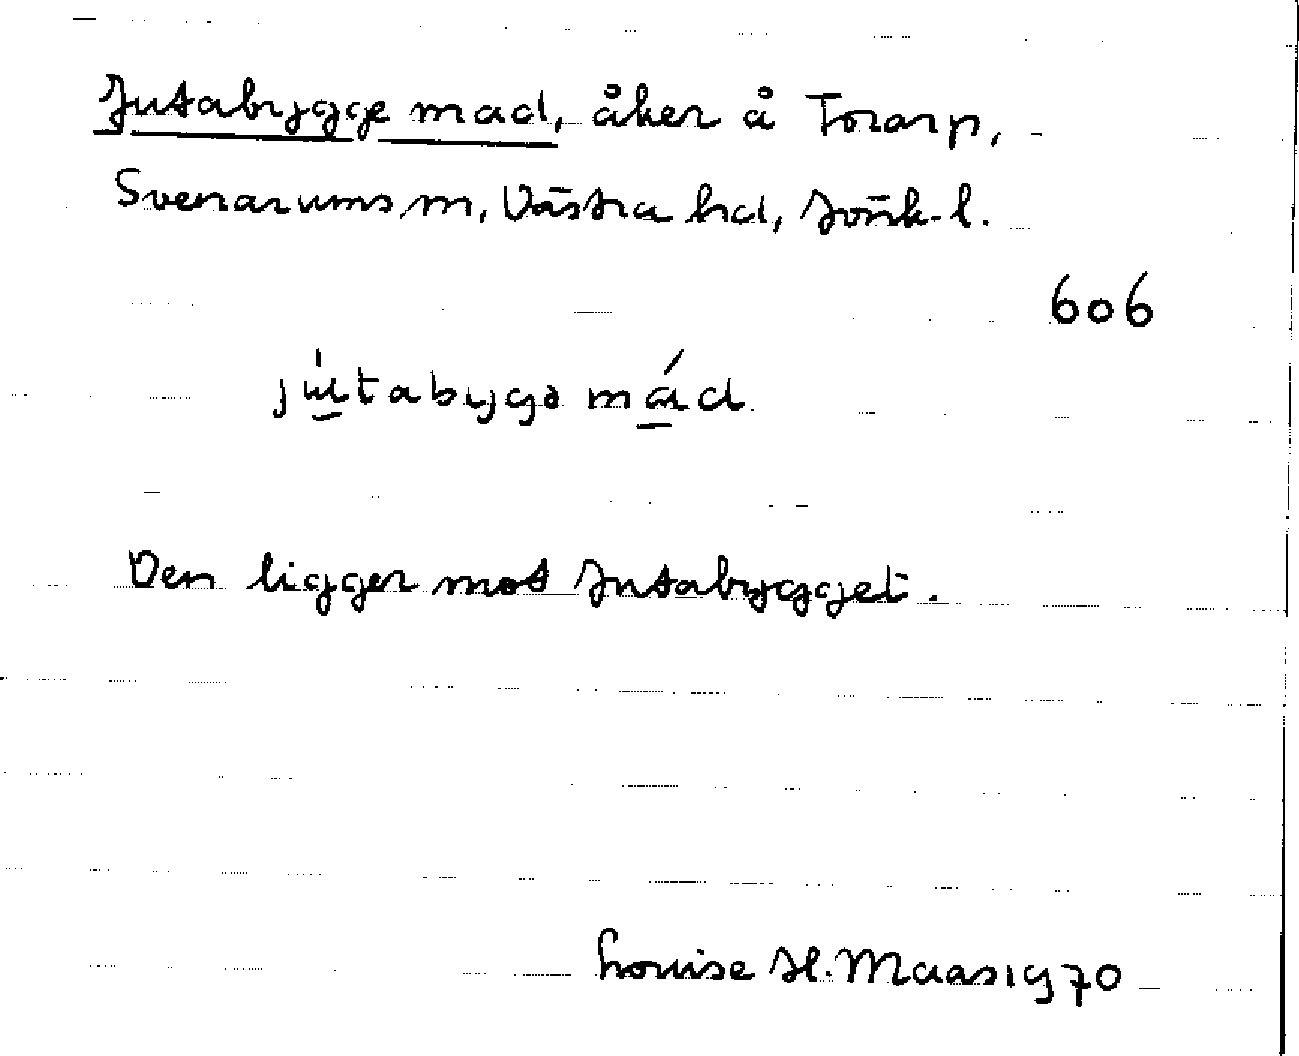 Jutabygge mad, åker å Torarp,
Svenarums sn, Västra hd, Jönk. l.
606
jútabygə mád
Den ligger mot Jutabygget.
Louise H. Maas 1970